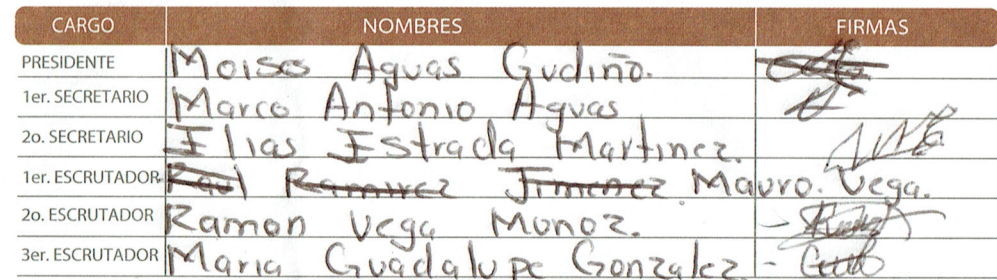 CARGO NOMBRES FIRMAS
PRESIDENTE Moises Aguas Gudiño.
1er. SECRETARIO Marco Antonio Aguas
2o. SECRETARIO Elias Estrada Martinez.
1er. ESCRUTADOR Raul Ramirez Jimenez Mauro. Vega.
2o. ESCRUTADOR Ramon Vega Munoz.
3er. ESCRUTADOR Maria Guadalupe Gonzalez -